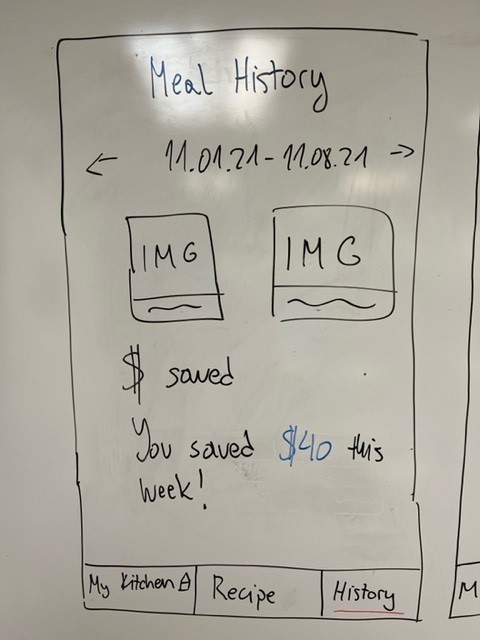 Meal History
← 11.01.21 - 11.08.21 →
IMG IMG
$ saved
You saved $40 this
week!
My Kitchen Recipe History
M